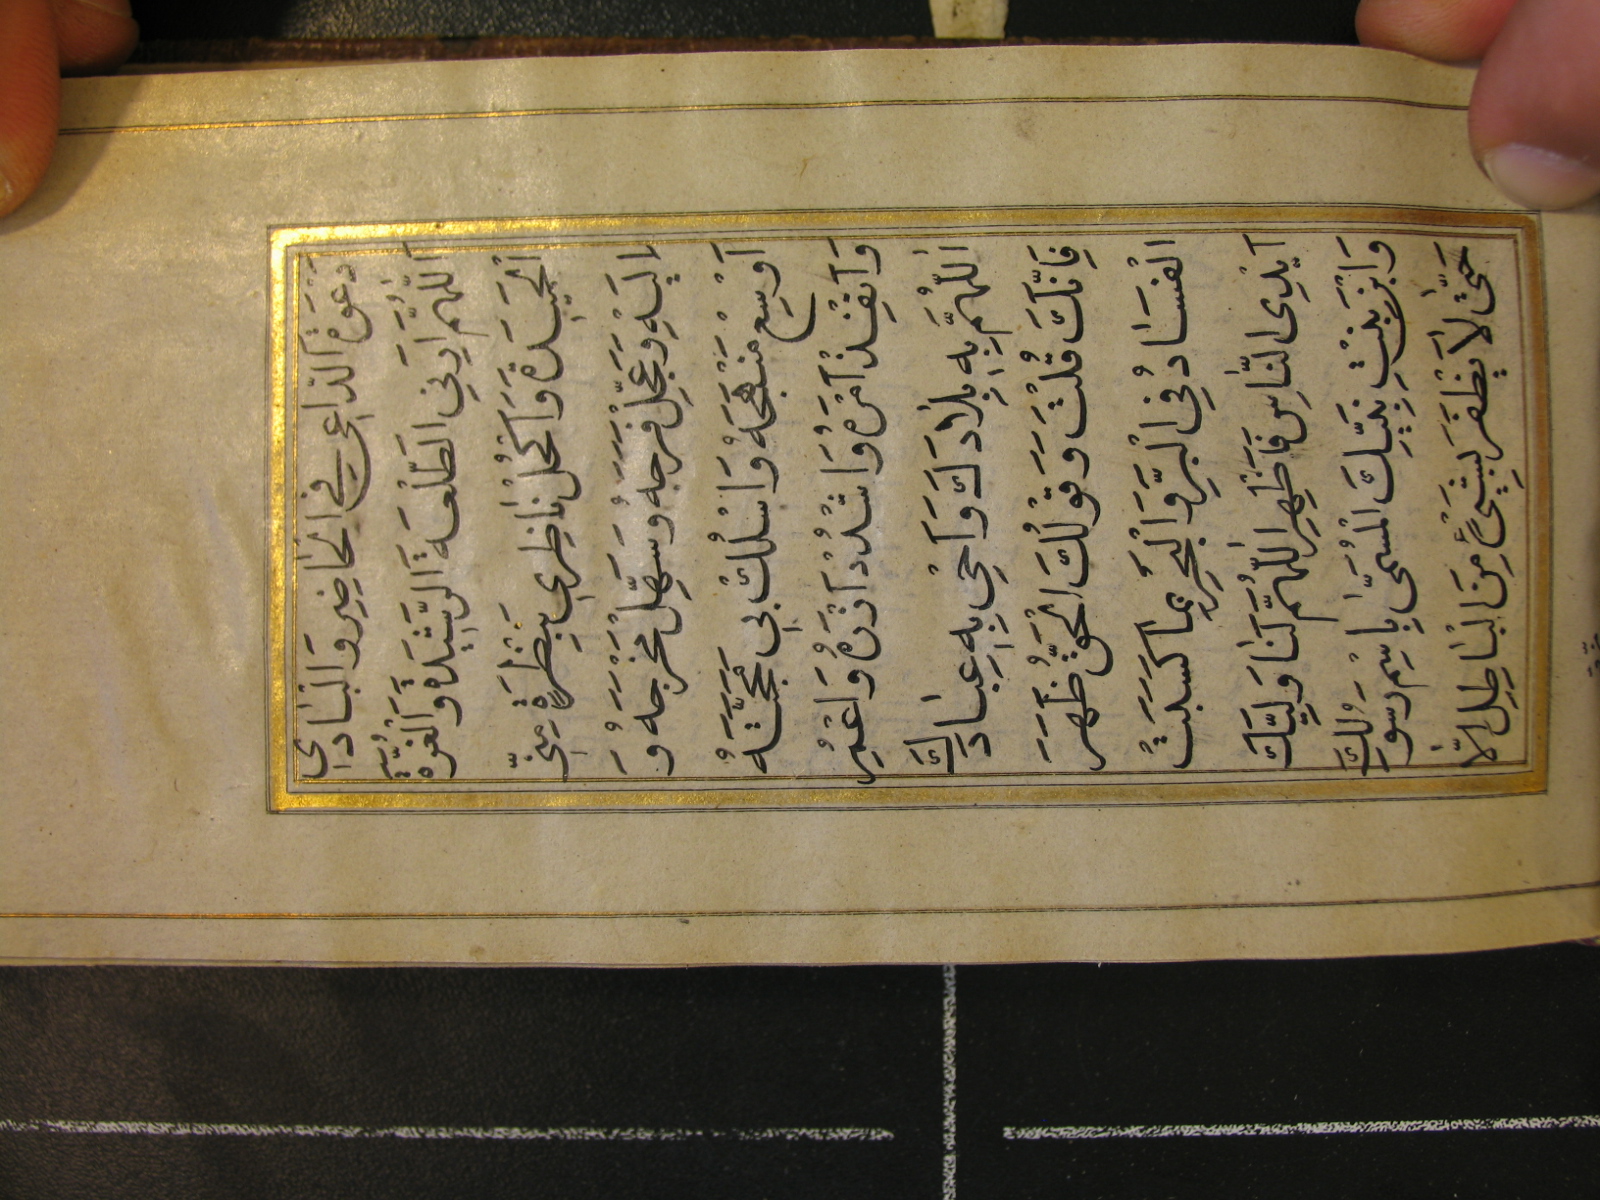 دَعْوَةَ الدّاعي في الحاضِرِ وَ الْبادي
اَللّهُمَّ اَرِنِي الطَّلْعَةَ الرَّشيدَةَ وَ الْغُرَّةَ
الْحَميدَةَ وَ اكْحُلْ ناظِري بِنَظْرَةٍ مِنّي
اِلَيْهِ وَ عَجِّلْ فَرَجَهُ وَ سَهِّلْ مَخْرَجَهُ وَ
اَوْسِعْ مَنْهَجَهُ وَ اسْلُكْ بي مَحَجَّتَهُ
وَ اَنْفِذْ اَمْرَهُ وَ اشْدُدْ اَزْرَهُ وَ اعْمُرِ
اللّهُمَّ بِهِ بِلادَكَ وَ اَحْيِ بِهِ عِبادَكَ
فَاِنَّكَ قُلْتَ وَ قَوْلُكَ الْحَقُّ ظَهَرَ
الْفَسادُ فِي الْبَرِّ وَ الْبَحْرِ بِما كَسَبَتْ
اَيْدِي النّاسِ فَاَظْهِرِ اللّهُمَّ لَنا وَلِيَّكَ
وَ ابْنَ بِنْتِ نَبِيِّكَ الْمُسَمّى بِاسْمِ رَسُولِكَ
حَتّى لا يَظْفَرَ بِشَيْءٍ مِنَ الْباطِلِ اِلّا